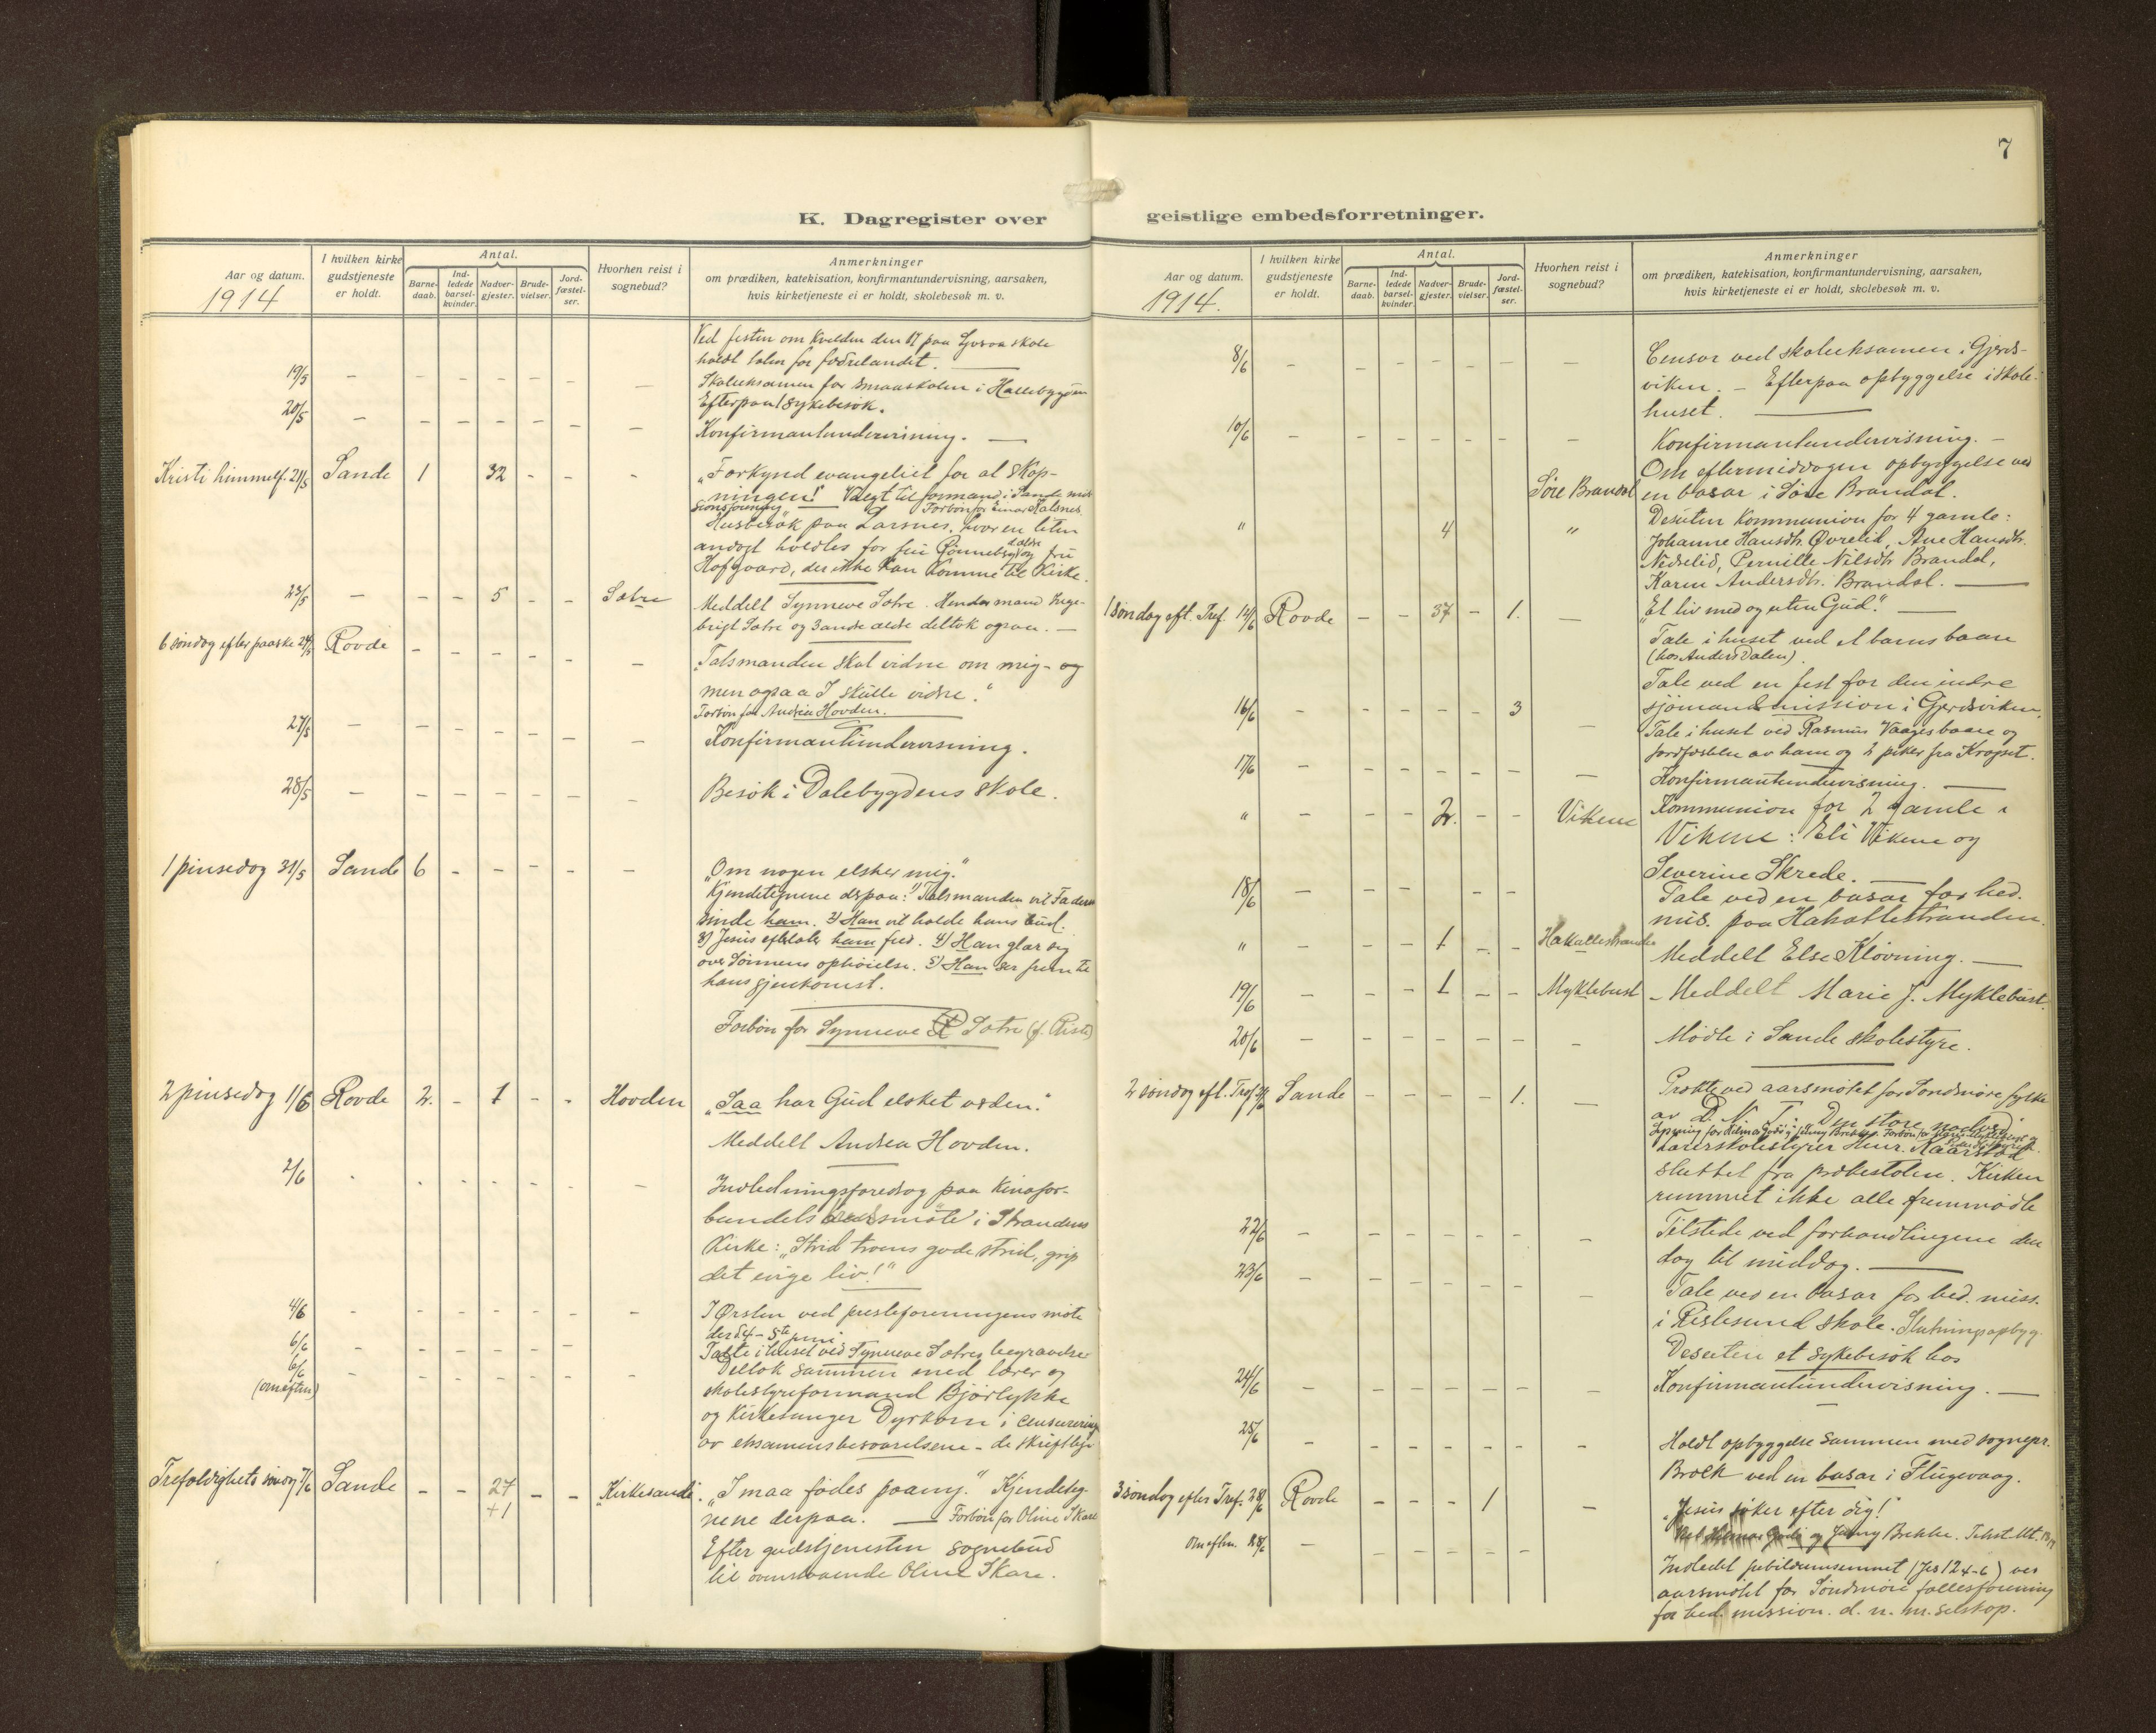 7
K. Dagregister over
Aar og datum.
1914
I hvilken kirke
gudstjeneste
er holdt.
Antal.
Barne-
daab.
Ind-
ledede
barsel-
kvinder.
Nadver-
gjester.
Brude-
vielser.
Jord-
fæstel-
ser.
Hvorhen reist i
sognebud?
Anmerkninger
om prædiken, katekisation, konfirmantundervisning, aarsaken,
hvis kirketjeneste ei er holdt, skolebesøk m. v.
Ved festen om kvelden den 17 paa skole
holdt talen for fædrelandet. —
19/5 – – – – – – – Skoleeksamen for smaaskolen i Hallebygden
Efterpaa 1 sykebesøk.
20/5 – – – – – – – Konfirmantundervisning. —
Kristi himmelf. 21/5 Sande 1 32 – – – „Forkynd evangeliet for al skap-
ningen!" Valgt til formand i Sande mis
sionsforening — Forbøn for Einar Halsnes.
Husbesøk paa Larsnes, hvor en liten
andagt holdtes for fru Rønneberg og ældre fru
Hofgaard, der ikke kan komme til kirke.
23/5 – – – 5 – – Sætre Meddelt Synneve Sætre. Hendes mand Inge-
brigt Sætre og 3 andre ældre deltok ogsaa. —
6 søndag efter paaske 24/5 Rovde – – – – – – „Talsmanden skal vidne om mig – og
men ogsaa I skulle vidne."
Forbøn for Andrea Hovden.
27/5 – – – – – – – Konfirmantundervisning.
28/5 – – – – – – – Besøk i Dalebygdens skole.
1 pinsedag 31/5 Sande 6 – – – – – „Om nogen elsker mig."
Kjendetegnene derpaa: 1) Talsmanden vil Faderen
sende ham. 2) Han vil holde hans bud.
3) Jesus efterlater ham fred. 4) Han glær sig
over Sønnens ophøielse. 5) Han ser frem til
hans gjenkomst.
Forbøn for Synneve R Sætre (f. Riste)
2 pinsedag 1/6 Rovde 2. – 1 – – Hovden „Saa har Gud elsket verden."
Meddelt Andrea Hovden.
2/6 Indledningsforedrag paa Kinafor-
bundets aarsmøte i Strandens
Kirke: „Strid troens gode strid, grip
det evige liv!"
4/6 – – – – – – – I Ørsten ved presteforeningens møte
der d 4 – 5te juni.
6/6 Talte i huset ved Synneve Sætres begravelse
6/6
(om eftm) – – – – – – – Deltok sammen med lærer og
skolestyreformand Bjørlykke
og kirkesanger Dyrkorn i censurering
av eksamensbesvarelsene – de skriftlige
Trefoldighets søndag 7/6 Sande – – 27
+1 – – Kirkesande. „I maa fødes paany." Kjendeteg-
nene derpaa. — Forbøn for Oline Skare
Efter gudstjenesten sognebud
til ovenstaaende Oline Skare.
geistlige embedsforretninger.
Aar og datum.
1914.
I hvilken kirke
gudstjeneste
er holdt.
Antal.
Barne-
daab.
Ind-
ledede
barsel-
kvinder.
Nadver-
gjester.
Brude-
vielser.
Jord-
fæstel-
ser.
Hvorhen reist i
sognebud?
Anmerkninger
om prædiken, katekisation, konfirmantundervisning, aarsaken,
hvis kirketjeneste ei er holdt, skolebesøk m. v.
8/6 – – – – – – – Censor ved skoleeksamen i Gjerds-
viken. – Efterpaa opbyggelse i skole-
huset. —
10/6 – – – – – – – Konfirmantundervisning. –
Søre Brandal Om eftermiddagen opbyggelse ved
en basar i Søre Brandal.
" 4 " Desuten kommunion for 4 gamle:
Johanne Hansdtr. Øvrelid, Ane Hansdtr.
Nedrelid, Pernille Nilsdtr. Brandal,
Karen Andersdtr. Brandal. —
1 søndag eft. Tref. 14/6 Rovde – – 37 – 1. – „Et liv med og uten Gud." —
Tale i huset ved et barns baare
(hos Anders Dalen).
Tale ved en fest for den indre
sjømandsmission i Gjerdsviken.
16/6 – – – – – 3 – Tale i huset ved Rasmus Vaages baare og
jordfæstelse av ham og 2 piker fra Kragset.
17/6 – – – – – – – Konfirmantundervisning. —
" – – – 2. – – Vikene Kommunion for 2 gamle i
Vikene: Eli Vikene og
Severine Skrede. —
18/6 – – – – – Tale ved en basar for hed.
mis. paa Hakallestranden.
" – – – 1 – – Hakallestranden Meddelt Else Kløvning. —
19/6 – – – 1 – – Myklebust Meddelt Marie J. Myklebust.
20/6 – – – – – – – Møtte i Sande skolestyre.
2 søndag eft. Tref. 21/6 Sande – – – – 1. – Prækte ved aarsmøtet for Søndmøre fylke
av D. N. T. Den store nadverd.
Lysning for Hilmar Godø og Jenny Brekke. Forbøn for
Lærerskolestyrer Henr. Kaarstad
sluttet fra prækestolen. Kirken
rummet ikke alle fremmødte
22/6 – – – – – – – Tilstede ved forhandlingene den
dag til middag. —
23/6 – – – – – – – Tale ved en basar for hed. miss.
i Ristesund skole. Slutningsopbyg.
Desuten et sykebesøk hos
24/6 – – – – – – – Konfirmantundervisning. —
25/6 – – – – – – – Holdt opbyggelse sammen med sognepr.
Brock ved en basar i Flugevaag.
3 søndag efter Tref. 28/6 Rovde – – – 1 – „Jesus søker efter dig!"
Viet Hilmar Godø og Jenny Brekke. Tekst Mt.
Om eftm. 28/6 – – – – – – Indledet jubilæumsemnet (Jes 12 4-6) ved
aarsmøtet for Søndmøre fællesforening
for hed. mission. d. n. m. selskap.